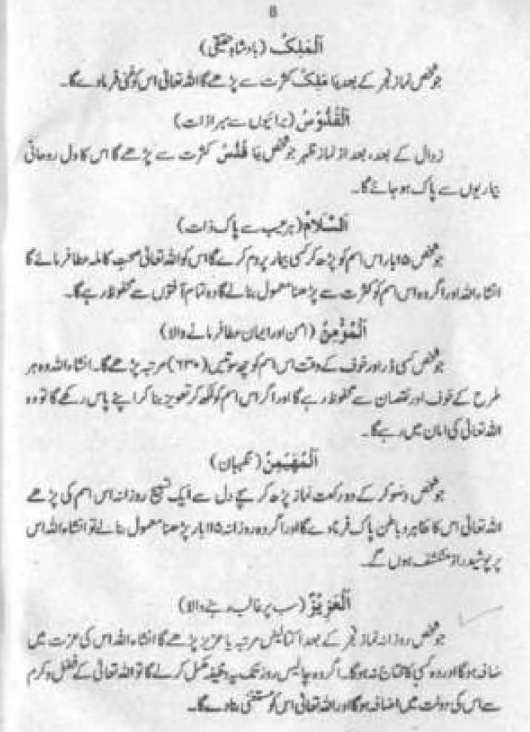 8
اَلْمَلِکُ (بادشاہ حقیقی)
جو شخص نماز فجر کے بعد یَا مَلِکُ کثرت سے پڑھے گا اللہ تعالیٰ اس کو غنی فرما دے گا۔
اَلْقُدُّوْسُ (برائیوں سے مبرا ذات)
زوال کے بعد، بعد از نماز ظہر جو شخص یَا قُدُّسُ کثرت سے پڑھے گا اس کا دل روحانی
بیماریوں سے پاک ہو جائے گا۔
اَلسَّلَامُ (ہر عیب سے پاک ذات)
جو شخص ۱۱۵ بار اس اسم کو پڑھ کر کسی بیمار پر دم کرے گا اس کو اللہ تعالیٰ صحت کاملہ عطا فرمائے گا
انشاء اللہ اور اگر وہ اس اسم کو کثرت سے پڑھنا معمول بنا لے گا وہ تمام آفتوں سے محفوظ رہے گا۔
اَلْمُؤْمِنُ (امن اور ایمان عطا فرمانے والا)
جو شخص کسی ڈر اور خوف کے وقت اس اسم کو چھ سو تیس (۶۳۰) مرتبہ پڑھے گا۔ انشاء اللہ وہ ہر
طرح کے خوف اور نقصان سے محفوظ رہے گا اور اگر اس اسم کو لکھ کر تعویز بنا کر اپنے پاس رکھے گا تو وہ
اللہ تعالیٰ کی امان میں رہے گا۔
اَلْمُهَیْمِنُ (نگہبان)
جو شخص وضو کر کے دو رکعت نماز پڑھ کر سچے دل سے ایک تسبیح روزانہ اس اسم کی پڑھے
اللہ تعالیٰ اس کا ظاہر و باطن پاک فرما دے گا اور اگر وہ روزانہ ۱۱۵ بار پڑھنا معمول بنا لے تو انشاء اللہ اس
پر پوشیدہ راز منکشف ہوں گے۔
اَلْعَزِیْزُ (سب پر غالب رہنے والا)
جو شخص روزانہ نماز فجر کے بعد اکتالیس مرتبہ یا عزیز پڑھے گا انشاء اللہ اس کی عزت میں
ضافہ ہو گا اور وہ کسی کا محتاج نہ ہو گا۔ اگر وہ چالیس روز تک یہ وظیفہ مکمل کرلے گا تو اللہ تعالیٰ کے فضل و کرم
سے اس کی دولت میں اضافہ ہو گا اور اللہ تعالیٰ اس کو مستغنی بنا دے گا۔